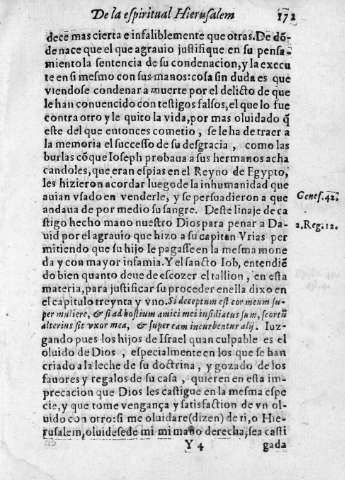 De la espiritual Hierusalem 172
dece mas cierta e infaliblemente que otras. De dõ-
de nace que el que agrauio justifique en su pensa-
miento la sentencia de su condenacion, y la execu
te en si mesmo con sus manos: cosa sin duda es que
viendose condenar a muerte por el delicto de que
le han conuencido con testigos falsos, el que lo fue
contra otro y le quito la vida, por mas oluidado q̃
este del que entonces cometio, se le ha de traer a
la memoria el sucesso de su desgracia, como las
burlas cõ que Ioseph prouaua a sus hermanos acha
candoles, que eran espias en el Reyno de Egypto,
les hizieron acordar luego de la inhumanidad que
Genes. 42.
auian vsado en venderle, y se persuadieron a que
andaua de por medio su sangre. Deste linaje de ca-
stigo hecho mano nuestro Dios para penar a Da-
2. Reg. 12.
uid por el agrauio que hizo a su capitan Vrias per
mitiendo que su hijo le pagasse en la mesma mone
da y con mayor infamia. Y el sancto Iob, entendiẽ
do bien quanto deue de escozer el tallion, en esta
materia, para justificar su proceder en ella dixo en
el capitulo treynta y vno. Si deceptum est cor meum su-
per muliere, & si ad hostium amici mei insidiatus sum, scortũ
alterius sit vxor mea, & super eam incurbentur alij. Iuz-
gando pues los hijos de Israel quan culpable es el
oluido de Dios, especialmente en los que se han
criado a la leche de su doctrina, y gozado de los
fauores y regalos de su casa, quieren en esta im-
precacion que Dios les castigue en la mesma espe
cie, y que tome vengança y satisfaction de vn ol-
uido con otro: si me oluidare (dizen) de ti, o Hie-
rusalem, oluidese de mi mi mano derecha, sea casti
Y 4 gada